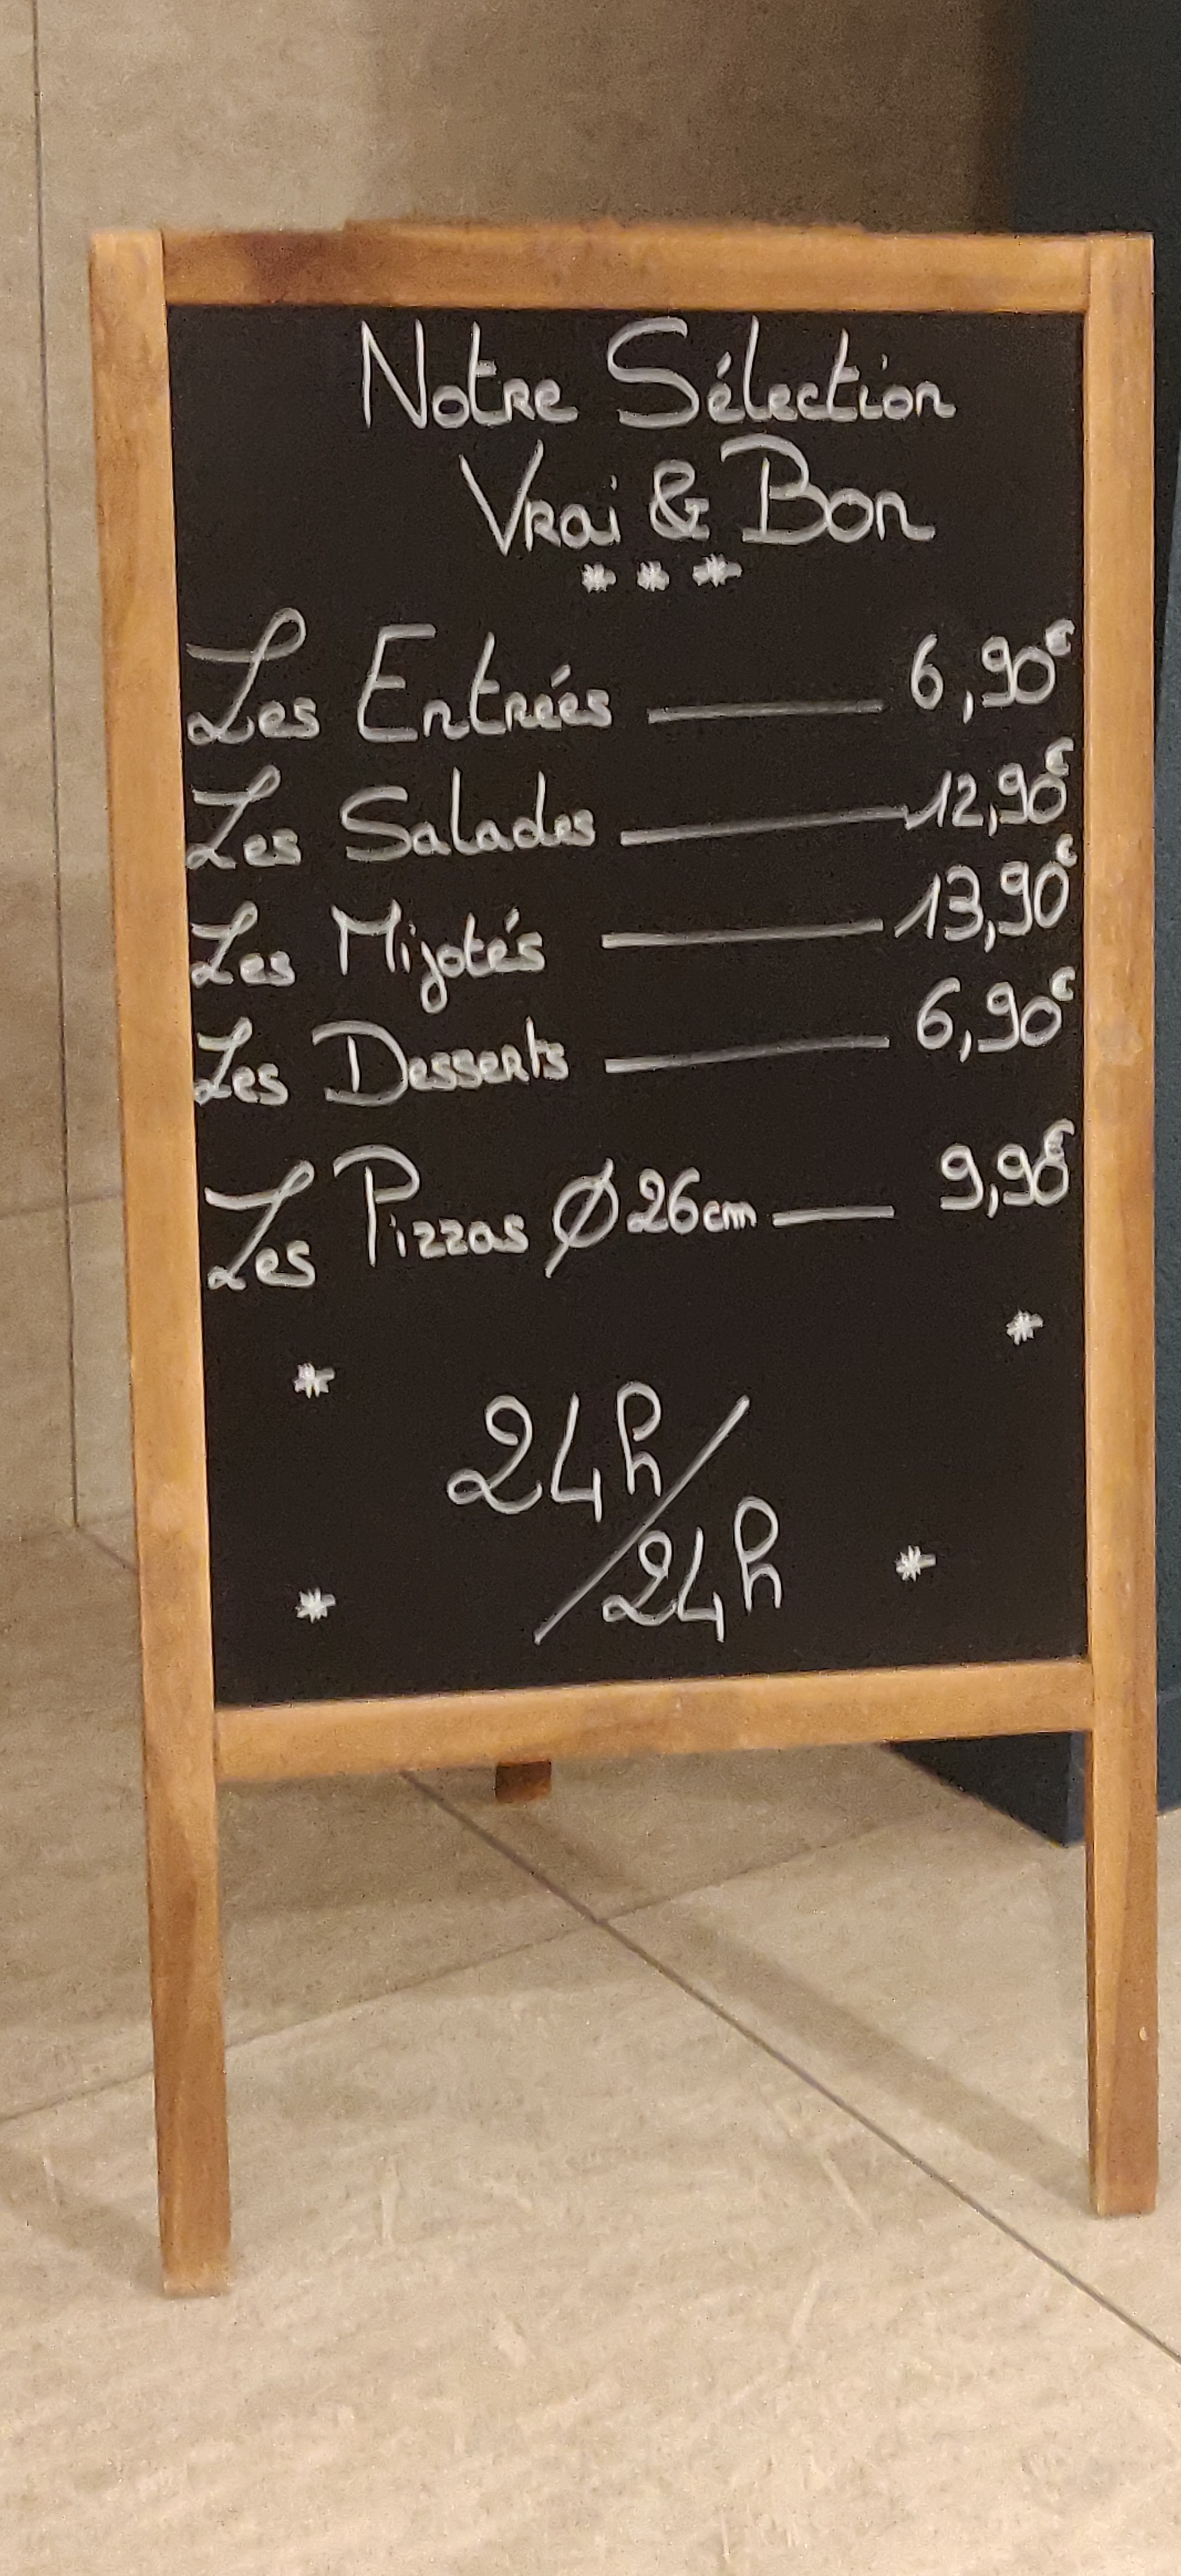 Notre Sélection
Vrai & Bon
* * *
Les Entrées — 6,90€
Les Salades — 12,90€
Les Mijotés — 13,90€
Les Desserts — 6,90€
Les Pizzas Ø 26cm — 9,90€
24h/
24h